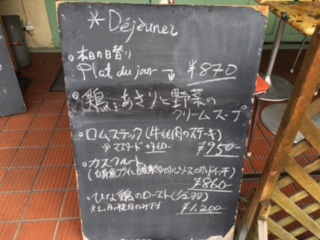 *Déjeuner
本日の日替り
Plat du jour → ¥870
鶏とあさりと野菜の
クリームスープ
・ロムステック(牛もも肉のステーキ)
※マスタード
¥950-
・カスクルート
(白身魚フライ、
サンドイッチ)
¥860-
・ひな鶏のロースト(1/2羽)
※土、日、祝日のみです ¥1,200-